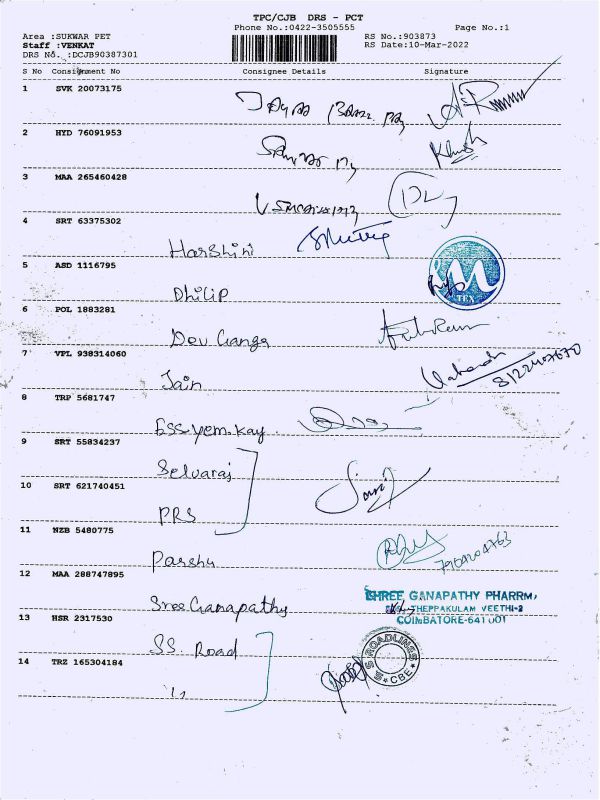 TPC/CJB DRS - PCT
Phone No.:0422-3505555
Page No.:1
Area :SUKWAR PET
RS No.:903873
Staff :VENKAT
RS Date:10-Mar-2022
DRS No. :DCJB90387301
S No Consignment No Consignee Details Signature
1 SVK 20073175
2 HYD 76091953
3 MAA 265460428
4 SRT 63375302
Harshini
5 ASD 1116795
Dhilip
TEX
6 POL 1883281
Dev Ganga
7 VPL 938314060
Jain
8122407670
8 TRP 5681747
Ess.yem.kay.
9 SRT 55834237
Selvaraj
10 SRT 621740451
PRS
11 NZB 5480775
Parshu
7904204763
12 MAA 288747895
Sree Ganapathy
SHREE GANAPATHY PHARRM,
THEPPAKULAM VEETHI-2
COIMBATORE-641 001
13 HSR 2317530
SS. Road
S S ROADLINGS
CBE
14 TRZ 165304184